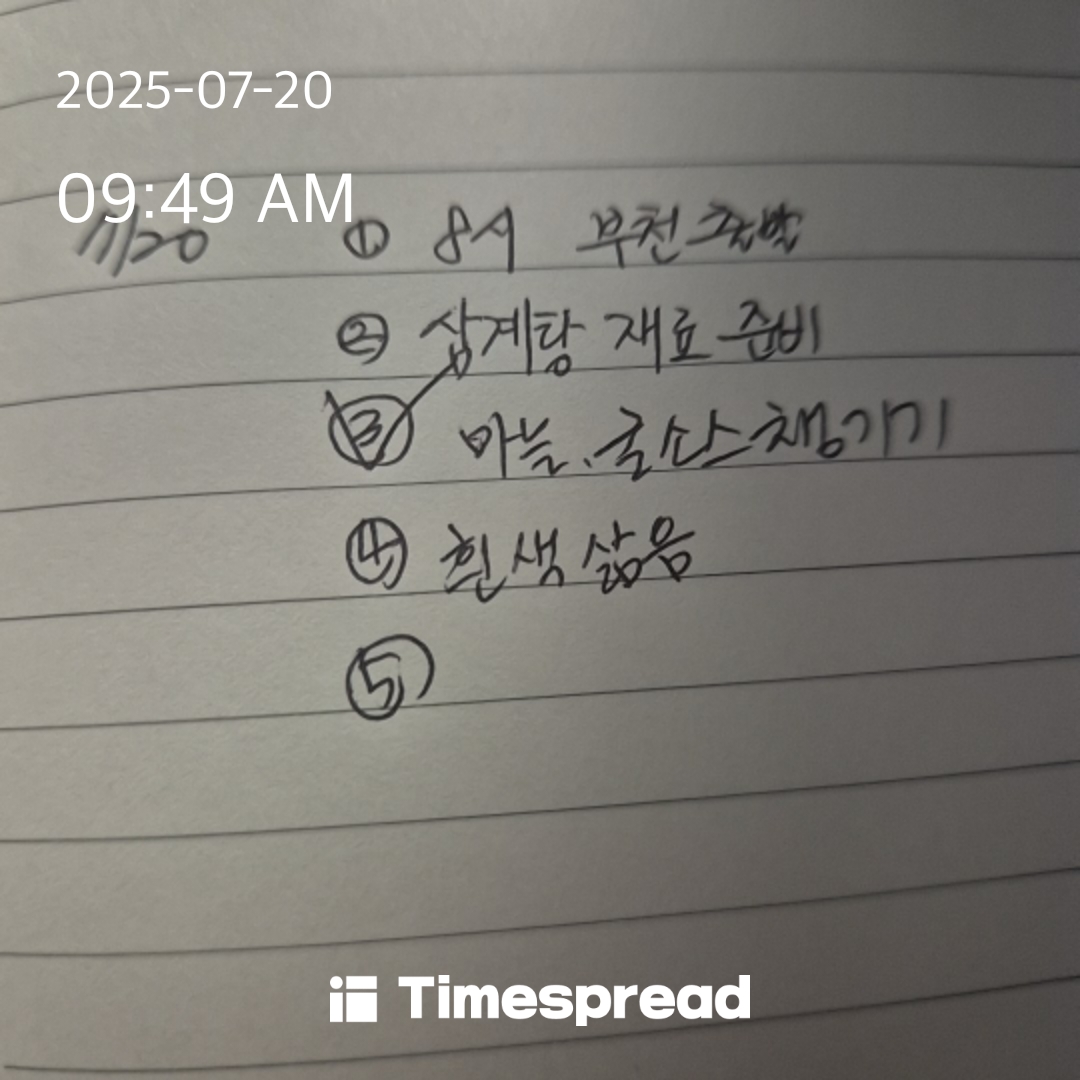 2025-07-20
09:49 AM
7/20 ① 8시 부천 출발
② 삼계탕 재료 준비
③ 마늘, 굴소스 챙기기
④ 흰색 삶음
⑤
Timespread